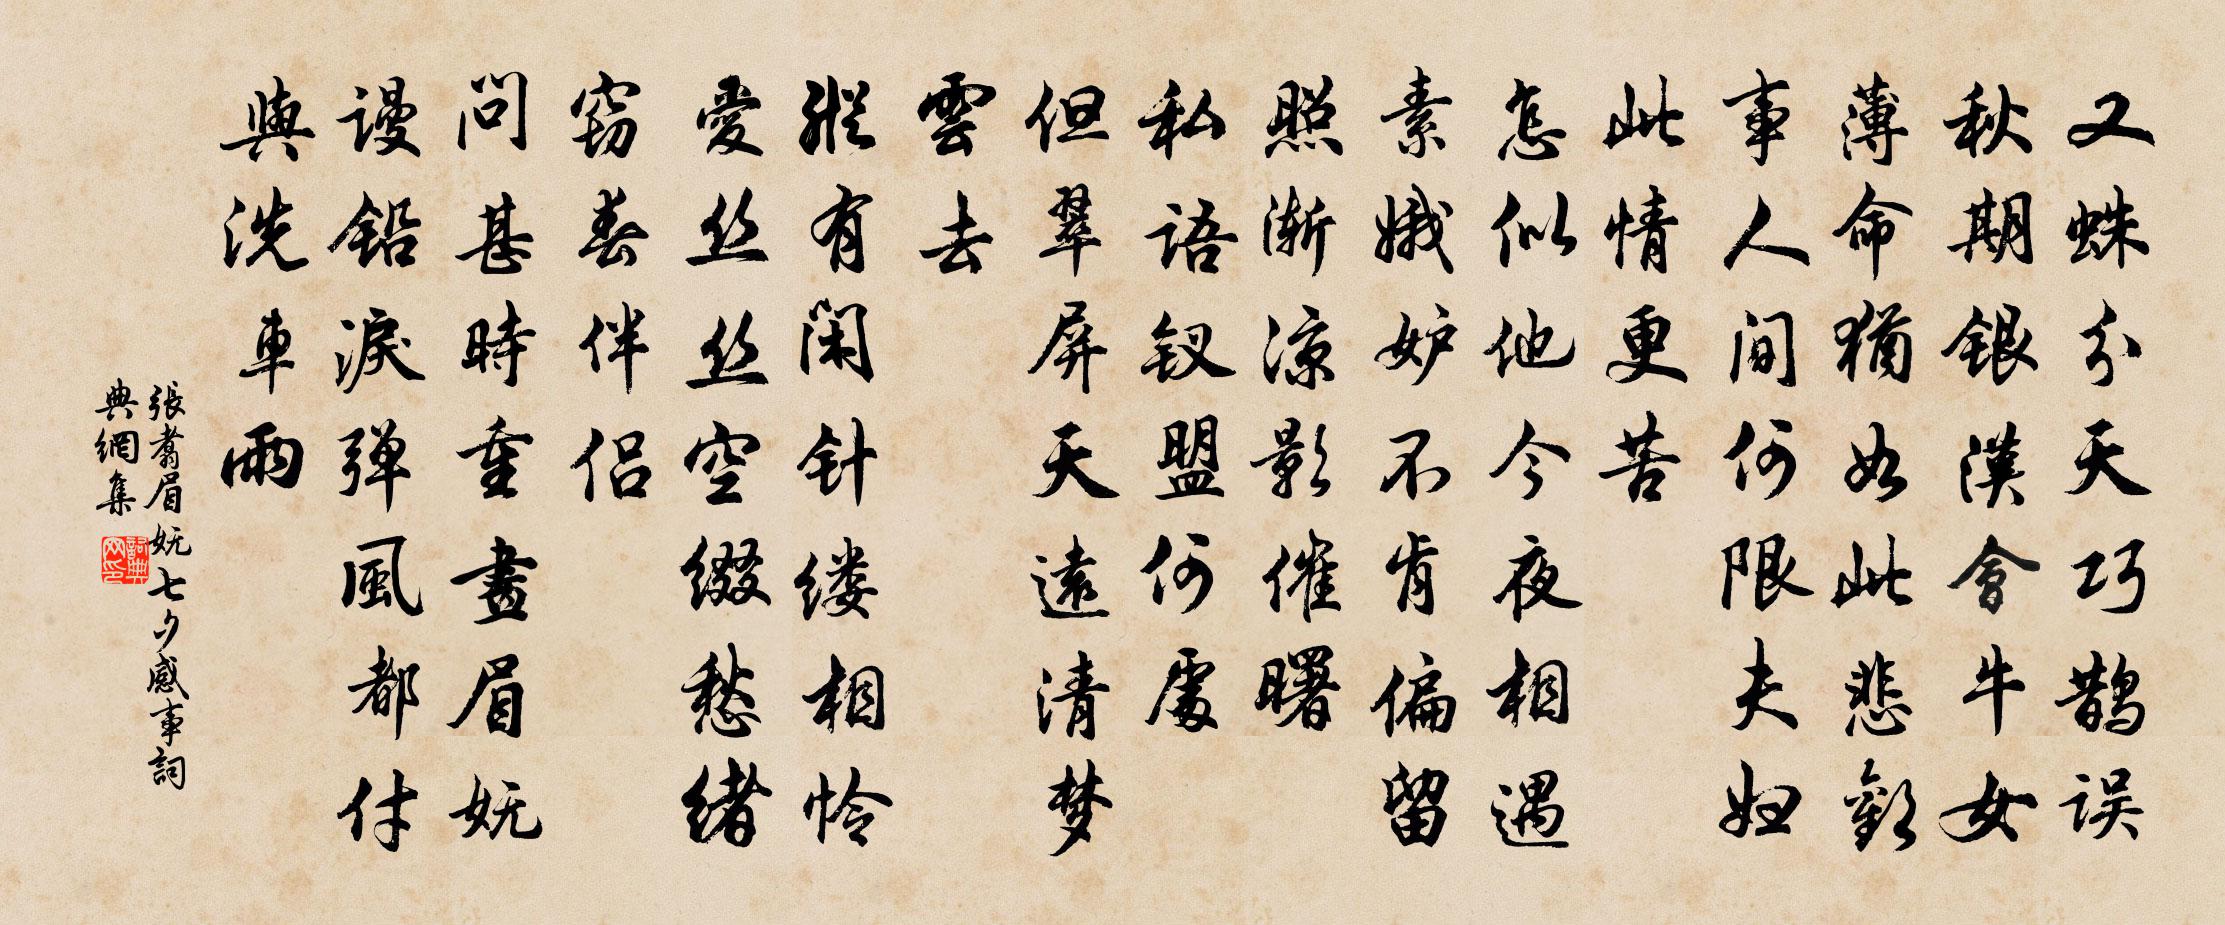 又蛛分天巧鹊误
秋期銀漢會牛女
薄命犹如此悲歡
事人间何限夫妇
此情更苦
怎似他今夜相遇
素娥妒不肯偏留
照渐凉影催曙
私語钗盟何處
但翠屏天遠清梦
雲去
縱有闲针缕相怜
愛丝丝空缀愁绪
窃春伴侣
问甚時重畫眉妩
谩铅淚弹風都付
與洗車雨
張翥眉妩七夕感事詞
典網集
詞典